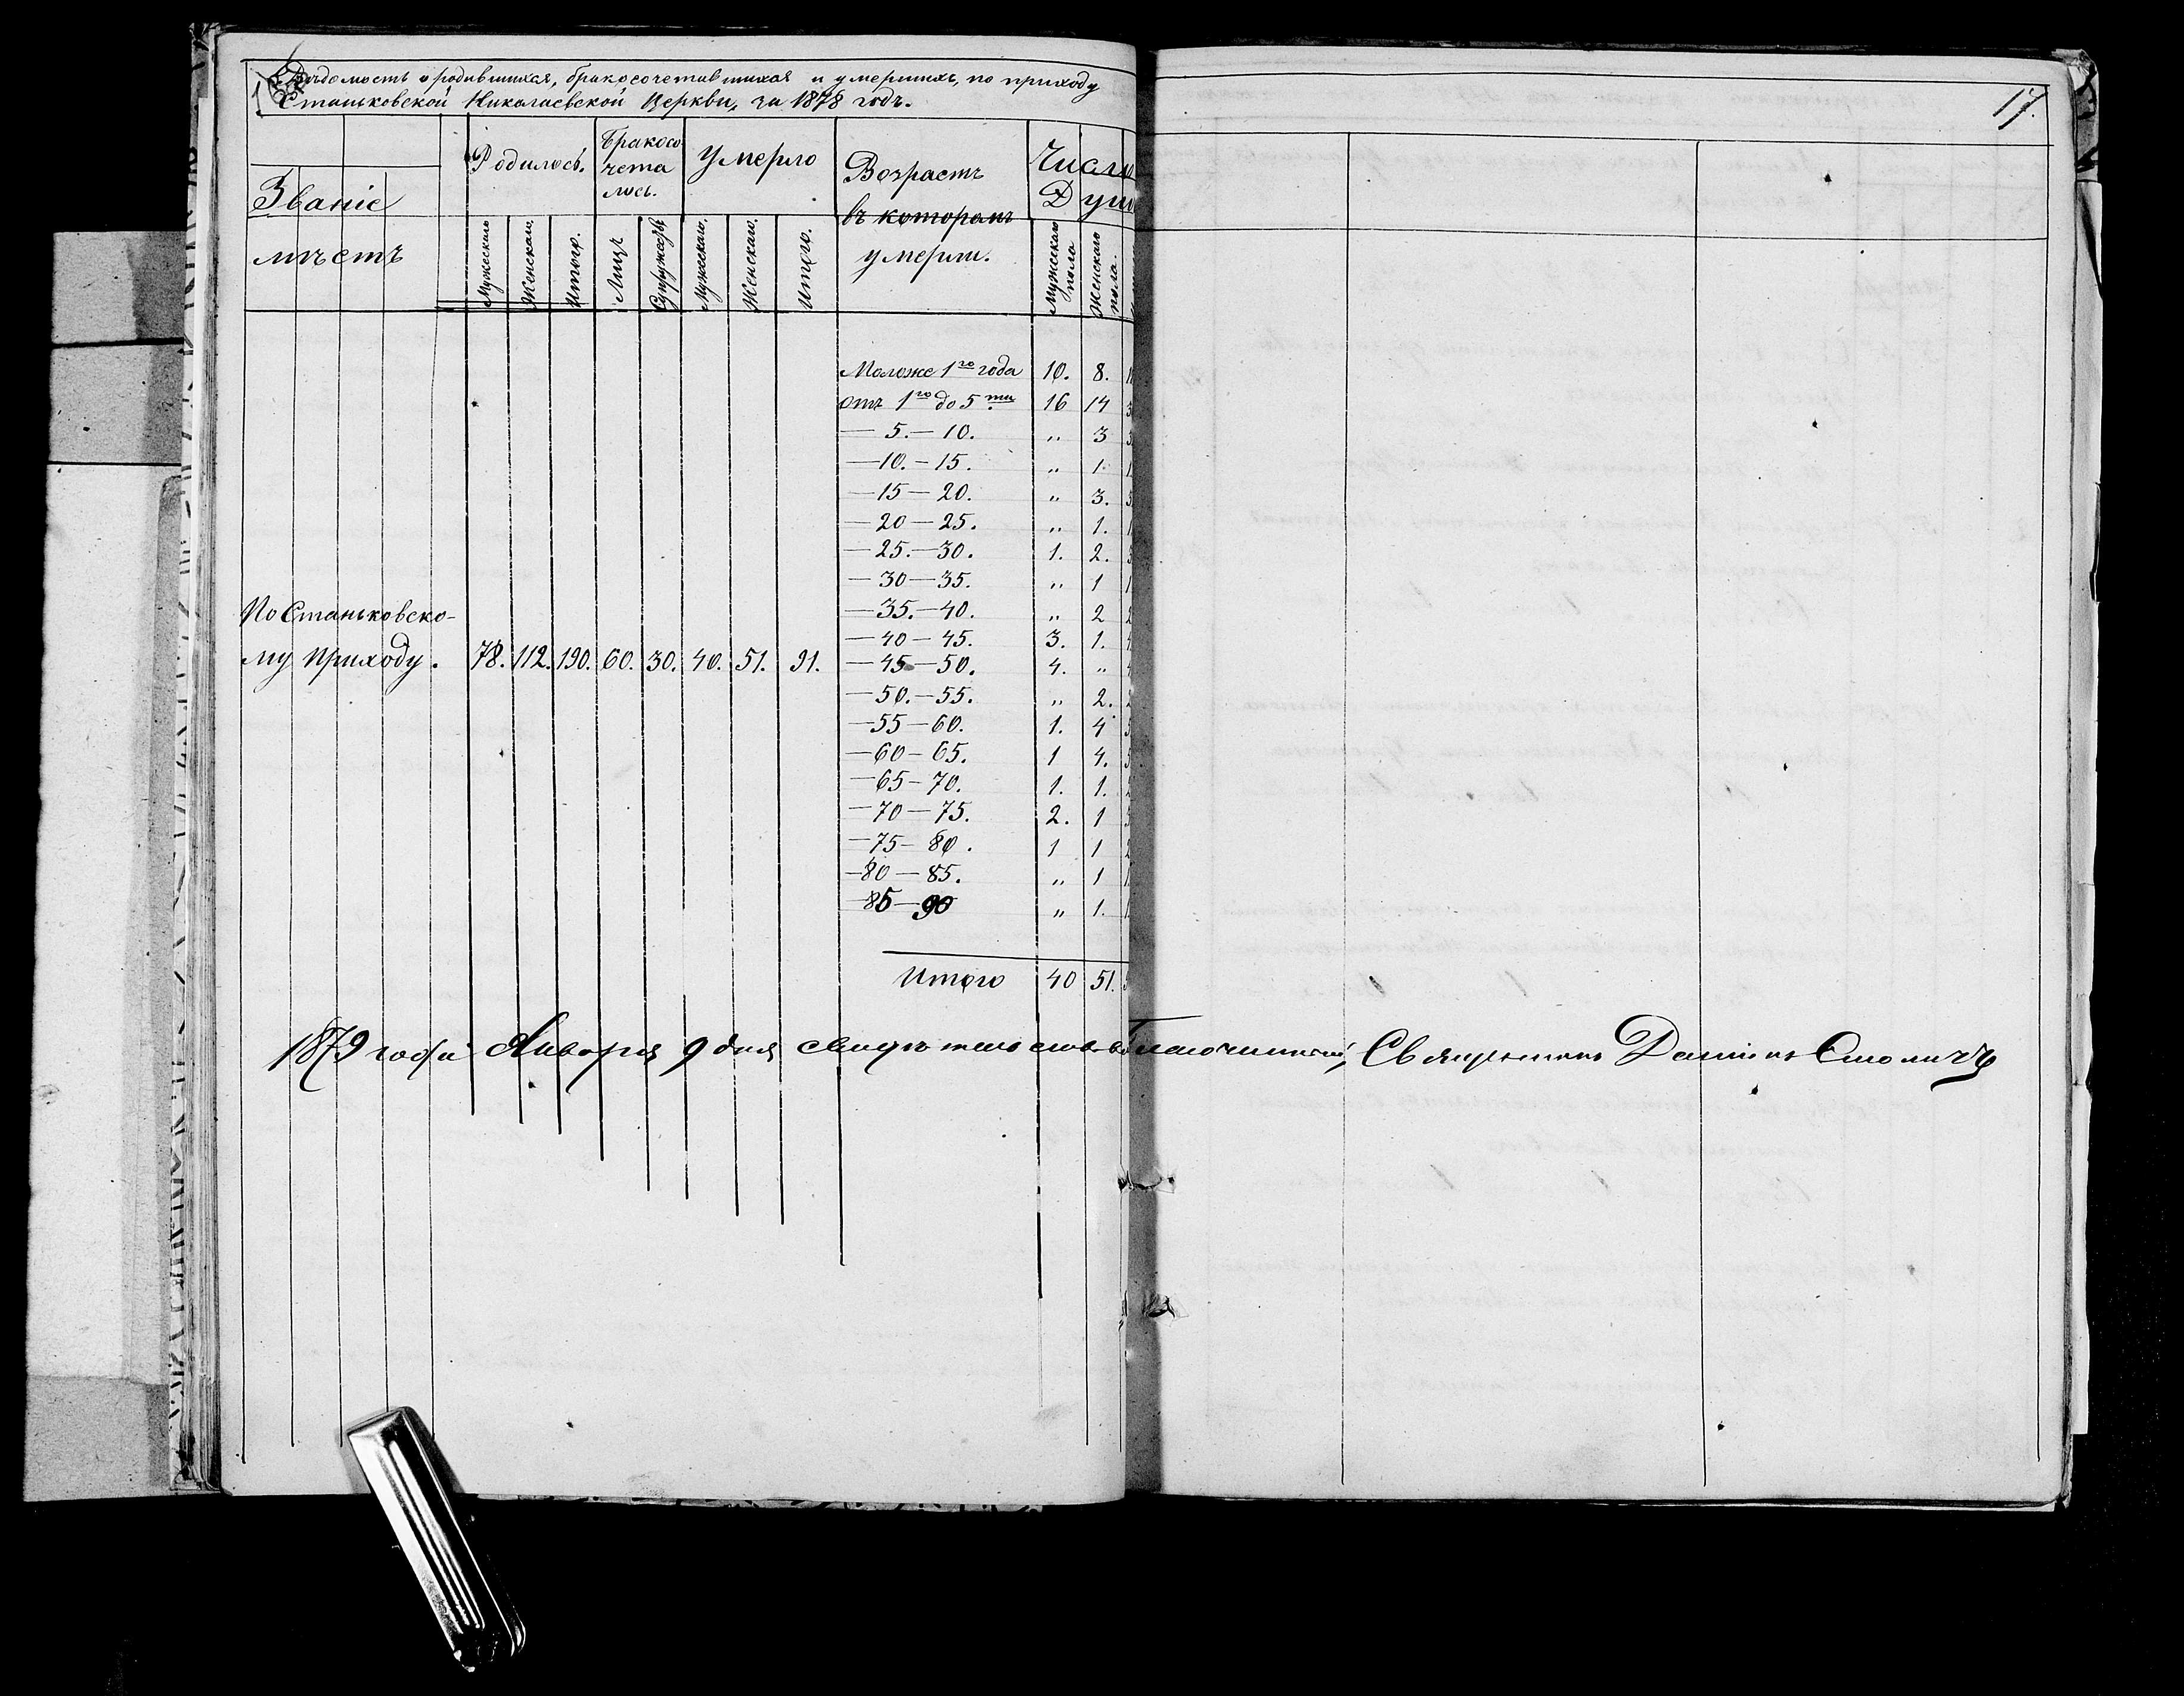 Вѣдомость о родившихся, бракосочетавшихся и умершихъ, по приходу
Станьковской Николаевской Церкви, за 1878 годъ.
17.
Званіе
мѣстъ
Родилось.
Бракосо
чета
лось.
Умерло
Возрастъ
въ которомъ
умерли.
Число
Душ
Мужескаго
Женскаго.
Итого.
Лицъ
Супружествъ
Мужескаго.
Женскаго.
Итого.
Мужскаго
пола
Женскаго
пола.
Моложе 1го года 10. 8.
отъ 1го до 5ти 16 14
— 5.—10. „ 3
—10.—15. „ 1.
—15—20. „ 3.
—20—25. „ 1.
—25.—30. 1. 2.
—30—35. „ 1
—35.—40. „ 2
—40—45. 3. 1.
По Станьковско-
му приходу. 78. 112. 190. 60. 30. 40. 51. 91. —45—50. 4. „
—50.—55. „ 2.
—55—60. 1. 4
—60—65. 1 4.
—65—70. 1. 1.
—70—75. 2. 1
—75—80. 1 1
—80—85. „ 1
85—90 „ 1.
Итого 40 51.
1879 года Января 9 дня Благочинный, Священникъ